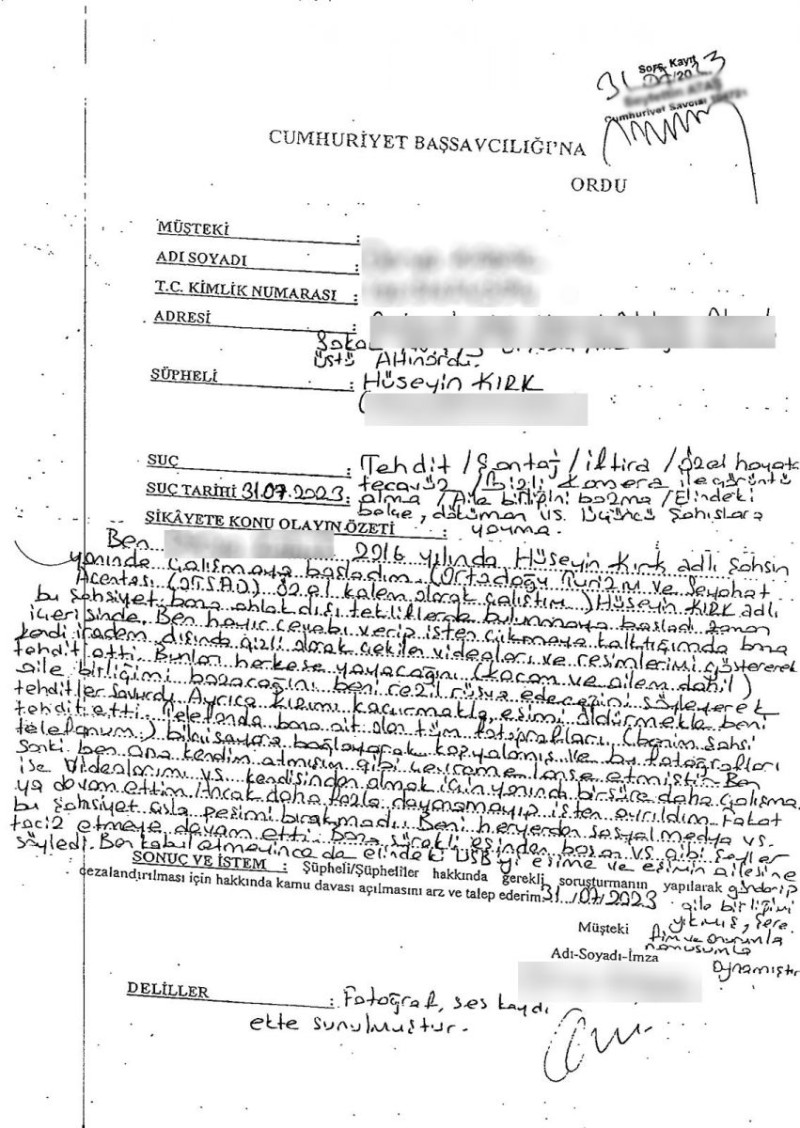 Sorş. Kayıt
31/07/2023
Cumhuriyet Savcısı
CUMHURİYET BAŞSAVCILIĞI'NA
ORDU
MÜŞTEKİ :
ADI SOYADI :
T.C. KİMLİK NUMARASI :
ADRESİ :
üstü Altınordu.
ŞÜPHELİ : Hüseyin KIRK
(
SUÇ : Tehdit / Şantaj / iftira / özel hayata
tecavüz / Gizli Kamera ile görüntü
SUÇ TARİHİ 31.07.2023 : alma / Aile birliğini bozma / Elindeki
belge, döküman vs. üçüncü şahıslara
ŞİKÂYETE KONU OLAYIN ÖZETİ : yayma.
Ben 2016 yılında Hüseyin Kırk adlı şahsın
yanında çalışmaya başladım. (Ortadoğu Turizm ve Seyahat
Acentası (ORSAD) özel kalem olarak çalıştım) Hüseyin KIRK adlı
bu şahsiyet bana ahlak dışı tekliflerde bulunmaya başladı zaman
içerisinde. Ben hayır cevabı verip işten çıkmaya kalktığımda bana
kendi iradem dışında gizli olarak çekilen videoları ve resimlerimi göstererek
tehdit etti. Bunları herkese yayacağını (kocam ve ailem dahil)
aile birliğimi bozacağını beni rezil rüsva edeceğini söyleyerek
tehditler savurdu. Ayrıca kızımı kaçırmakla, eşimi öldürmekle beni
tehdit etti. Telefonda bana ait olan tüm fotoğrafları (benim şahsi
telefonum) bilgisayara bağlayarak kopyalamış ve bu fotoğrafları
sanki ben ona kendim atmışım gibi çevreme lanse etmiştir. Ben
ise videolarım vs. kendisinden almak için yanında bir süre daha çalışma
ya devam ettim. Ancak daha fazla dayanamayıp işten ayrıldım. Fakat
bu şahsiyet asla peşimi bırakmadı. Beni heryerden sosyal medya vs.
taciz etmeye devam etti. Bana sürekli eşinden boşan vs. gibi şeyler
söyledi. Ben kabul etmeyince de elindeki USB'yi eşime ve eşimin ailesine
SONUÇ VE İSTEM : Şüpheli/Şüpheliler hakkında gerekli soruşturmanın yapılarak gönderip
cezalandırılması için hakkında kamu davası açılmasını arz ve talep ederim 31/07/2023 aile birliğimi
yıkmış, şere
Müşteki fim ve onurumla
namusumla
Adı-Soyadı-İmza
oynamıştır
DELİLLER : Fotoğraf, ses kaydı
ekte sunulmuştur.